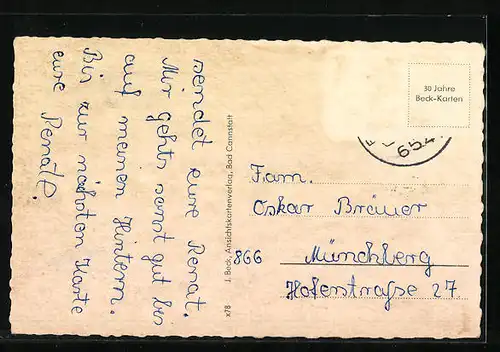 sendet eure Renat.
Mir gehts sonst gut bis
auf meinen Hintern.
Bis zur nächsten Karte
eure Renate.
x78 J. Beck, Ansichtskartenverlag, Bad Cannstatt
30 Jahre
Beck-Karten
654
Fam.
Oskar Bräuer
866 Münchberg
Hoferstraße 27.